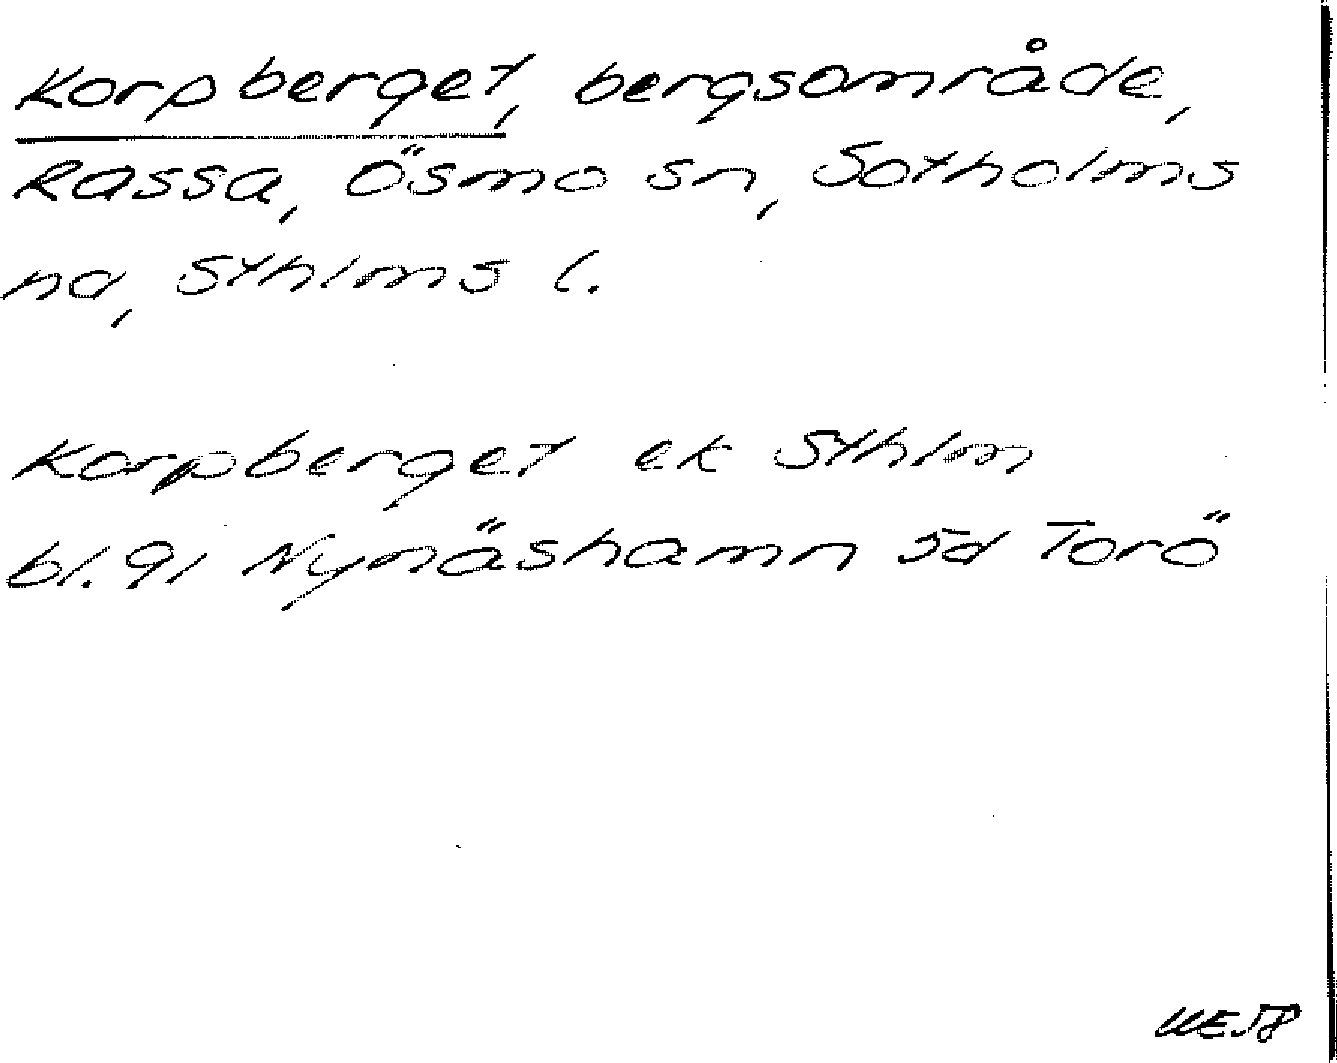 Korpberget, bergsområde,
Rassa, Ösmo sn, Sotholms
hd, Sthlms l.
Korpberget ek Sthlm
bl. 91 Nynäshamn Sd Torö
UE58